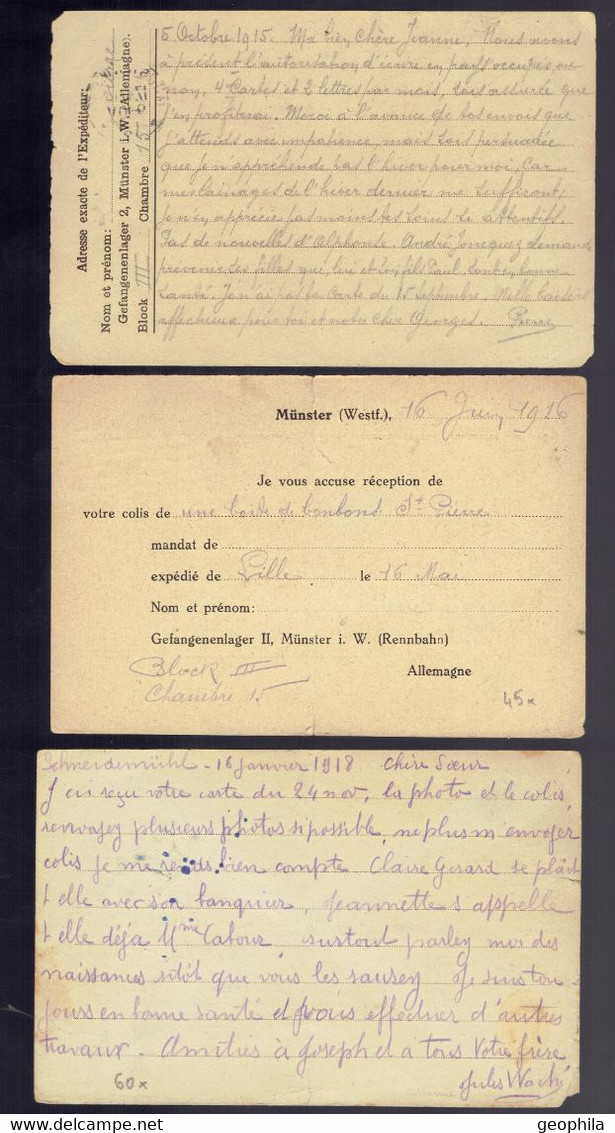 Adresse exacte de l'Expéditeur:
Nom et prénom:
Gefangenenlager 2, Münster i. W. (Allemagne).
Block III Chambre 15
5 Octobre 1915. Ma bien chère Jeanne, Nous avons
à présent l'autorisation d'écrire en pays occupés, ou
non, 4 Cartes et 2 lettres par mois, sois assurée que
j'en profiterai. Merci à l'avance de tes envois que
j'attends avec impatience mais sois persuadée
que je n'appréhende pas l'hiver pour moi. Car
mes lainages de l'hiver dernier me suffiront;
je n'en apprécie pas moins tes soins si attentifs.
Pas de nouvelles d'Alphonse. André demande
prévenir ses filles que lui et son fils Paul sont en bonne
santé. Je n'ai pas ta carte du 15 Septembre. Mille baisers
affectueux pour toi et notre cher Georges. Pierre
Münster (Westf.), 16 Juin 1916
Je vous accuse réception de
votre colis de une boite de bonbons St Pierre
mandat de
expédié de Lille le 16 Mai
Nom et prénom: Pierre
Gefangenenlager II, Münster i. W. (Rennbahn)
Block III Allemagne
Chambre 15
45x
Schneidemühl - 16 janvier 1918 Chère Sœur
J'ai reçu votre carte du 24 nov, la photo et le colis,
renvoyez plusieurs photos si possible, ne plus m envoyer
colis je me rends bien compte Claire Gérard se plaît
t elle avec son banquier, Jeannette s appelle
t elle déjà Mme Cabour, surtout parlez moi des
naissances sitôt que vous les saurez. Je suis tou
jours en bonne santé et vais effectuer d'autres
travaux. Amitiés à Joseph et a tous Votre frère
60x Jules Waché
geophila